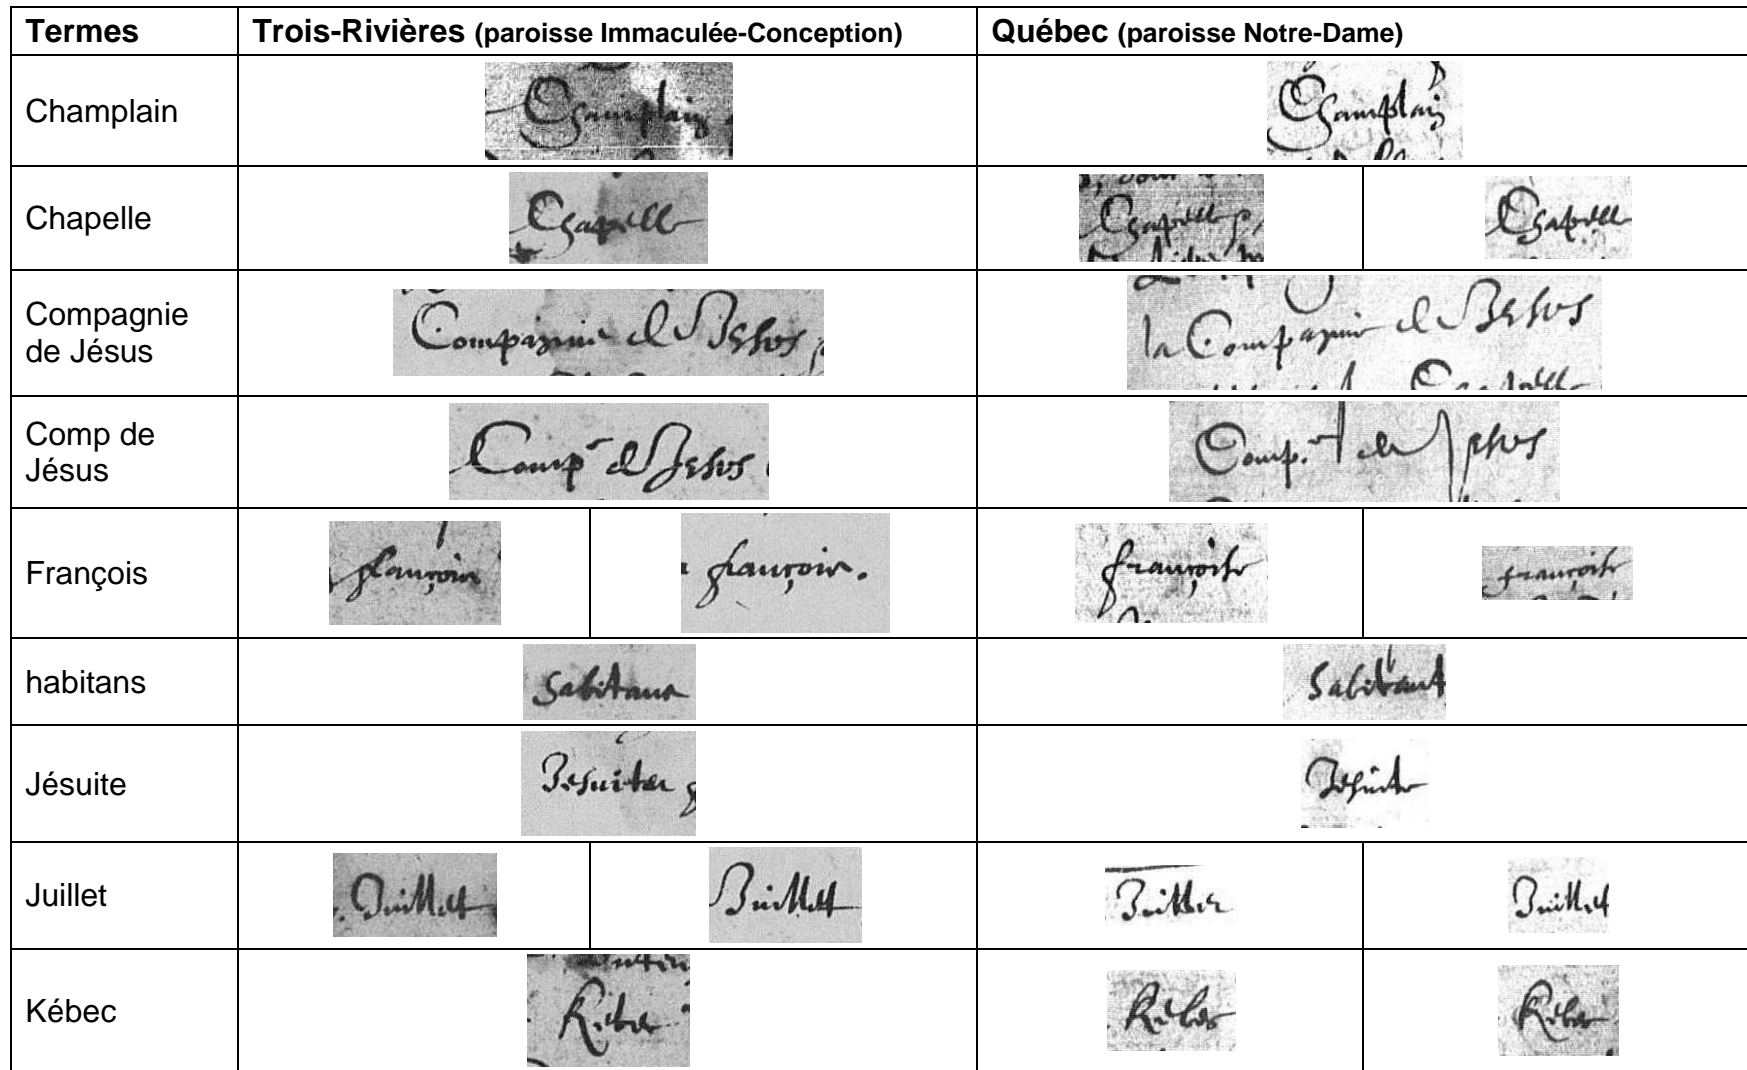 Termes Trois-Rivières (paroisse Immaculée-Conception) Québec (paroisse Notre-Dame)
Champlain Champlain Champlain
Chapelle Chapelle Chapelle Chapelle
Compagnie
de Jésus Compagnie de Jesus la Compagnie de Jesus
Comp de
Jésus Comp de Jesus Comp. de Jesus
François françois françois. françoise françoise
habitans habitans habitant
Jésuite Jesuites Jesuite
Juillet Juillet Juillet Juillet Juillet
Kébec Kebec Kebec Kebec